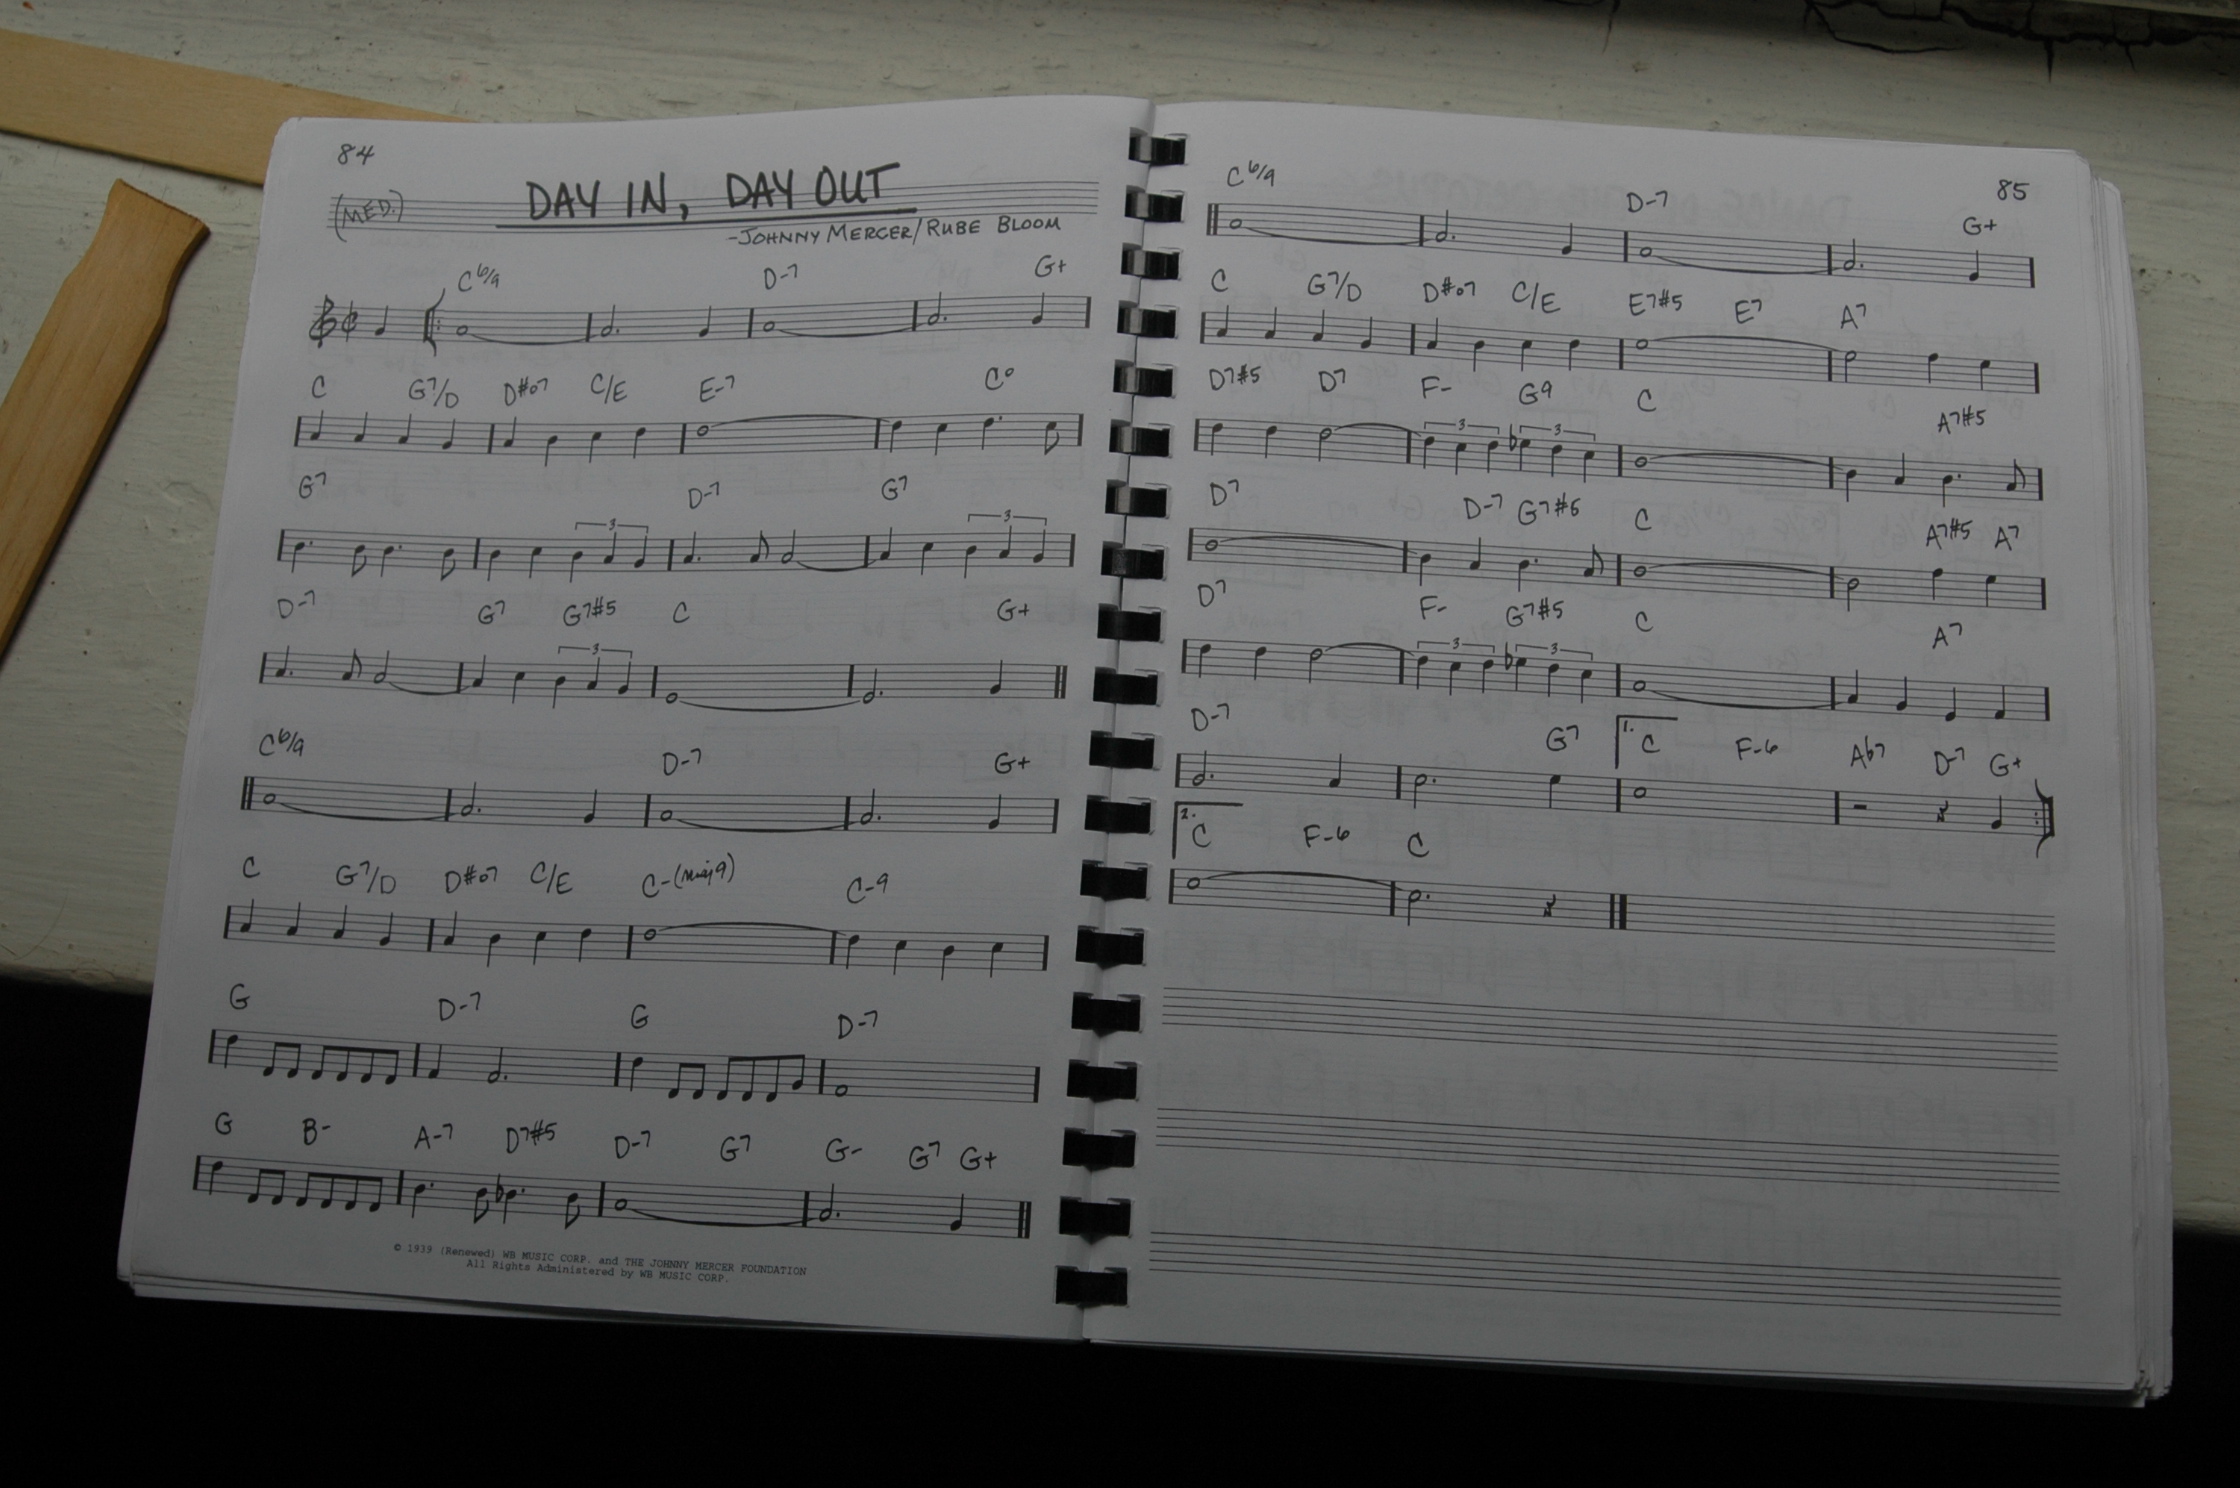 84
(MED.)
DAY IN, DAY OUT
-JOHNNY MERCER/RUBE BLOOM
C6/9 D-7 G+
C G7/D D#o7 C/E E-7 Co
3 3
G7 D-7 G7
3
D-7 G7 G7#5 C G+
C6/9 D-7 G+
C G7/D D#o7 C/E C-(maj9) C-9
G D-7 G D-7
G B- A-7 D7#5 D-7 G7 G- G7 G+
© 1939 (Renewed) WB MUSIC CORP. and THE JOHNNY MERCER FOUNDATION
All Rights Administered by WB MUSIC CORP.
85
C6/9 D-7 G+
C G7/D D#o7 C/E E7#5 E7 A7
D7#5 D7 F- G9 C A7#5
3 3
D7 D-7 G7#5 C A7#5 A7
D7 F- G7#5 C A7
3 3
D-7 G7 1. C F-6 Ab7 D-7 G+
2. C F-6 C